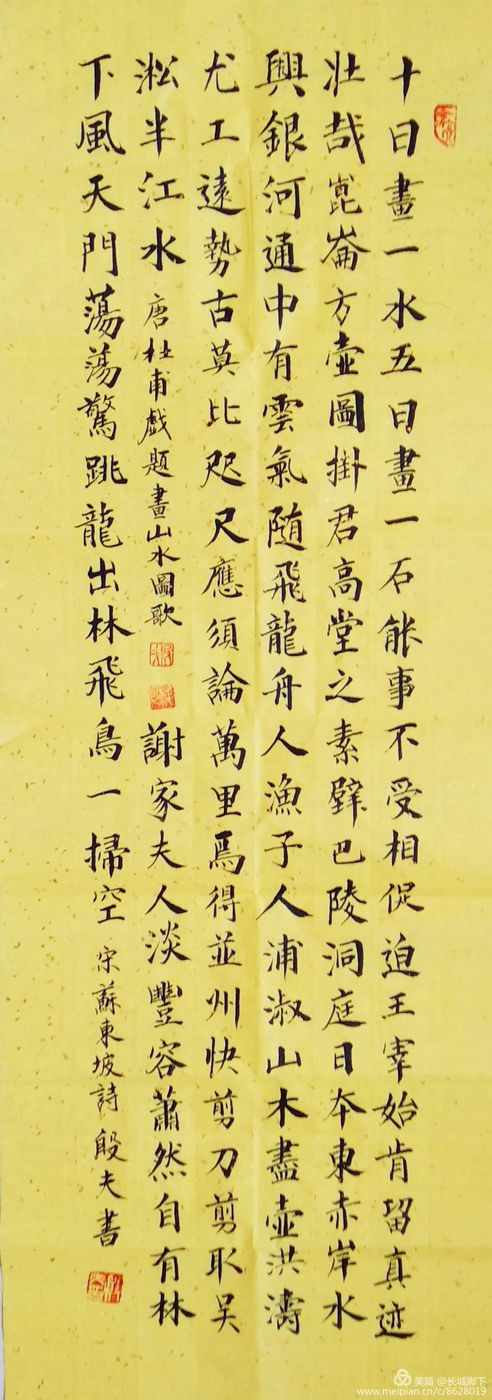 十日畫一水五日畫一石能事不受相促迫王宰始肯留真迹
壯哉崑崙方壺圖掛君高堂之素壁巴陵洞庭日本東赤岸水
興銀河通中有雲氣随飛龍舟人漁子人浦淑山木盡壺洪濤
尤工遠勢古莫比咫尺應須論萬里焉得並州快剪刀剪取吴
淞半江水 唐杜甫戲題畫山水圖歌 謝家夫人淡豐容蕭然自有林
下風天門蕩蕩驚跳龍出林飛鳥一掃空 宋蘇東坡詩 殷夫書
美篇 @长城脚下
www.meipian.cn/c/8628019